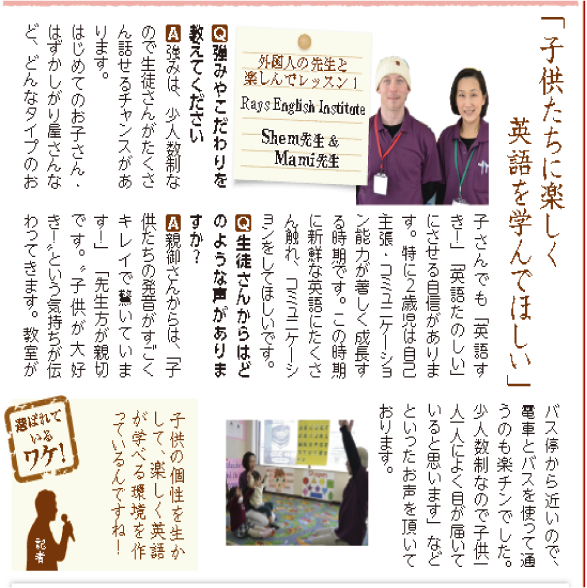 「子供たちに楽しく
英語を学んでほしい」
外国人の先生と
楽しんでレッスン！
Rays English Institute
Shem先生 &
Mami先生
Q強みやこだわりを
教えてください
A強みは、少人数制な
ので生徒さんがたくさ
ん話せるチャンスがあ
ります。
はじめてのお子さん・
はずかしがり屋さんな
ど、どんなタイプのお
子さんでも「英語す
き！」「英語たのしい」
にさせる自信がありま
す。特に2歳児は自己
主張・コミュニケーショ
ン能力が著しく成長す
る時期です。この時期
に新鮮な英語にたくさ
ん触れ、コミュニケーシ
ョンをしてほしいです。
Q生徒さんからはど
のような声がありま
すか？
A親御さんからは、「子
供たちの発音がすごく
キレイで驚いていま
す！」「先生方が親切
です。〝子供が大好
き！〟という気持ちが伝
わってきます。教室が
バス停から近いので、
電車とバスを使って通
うのも楽チンでした。
少人数制なので子供一
人一人によく目が届いて
いると思います」など
といったお声を頂いて
おります。
子供の個性を生か
して、楽しく英語
が学べる環境を作
っているんですね！
選ばれて
いる
ワケ！
記者